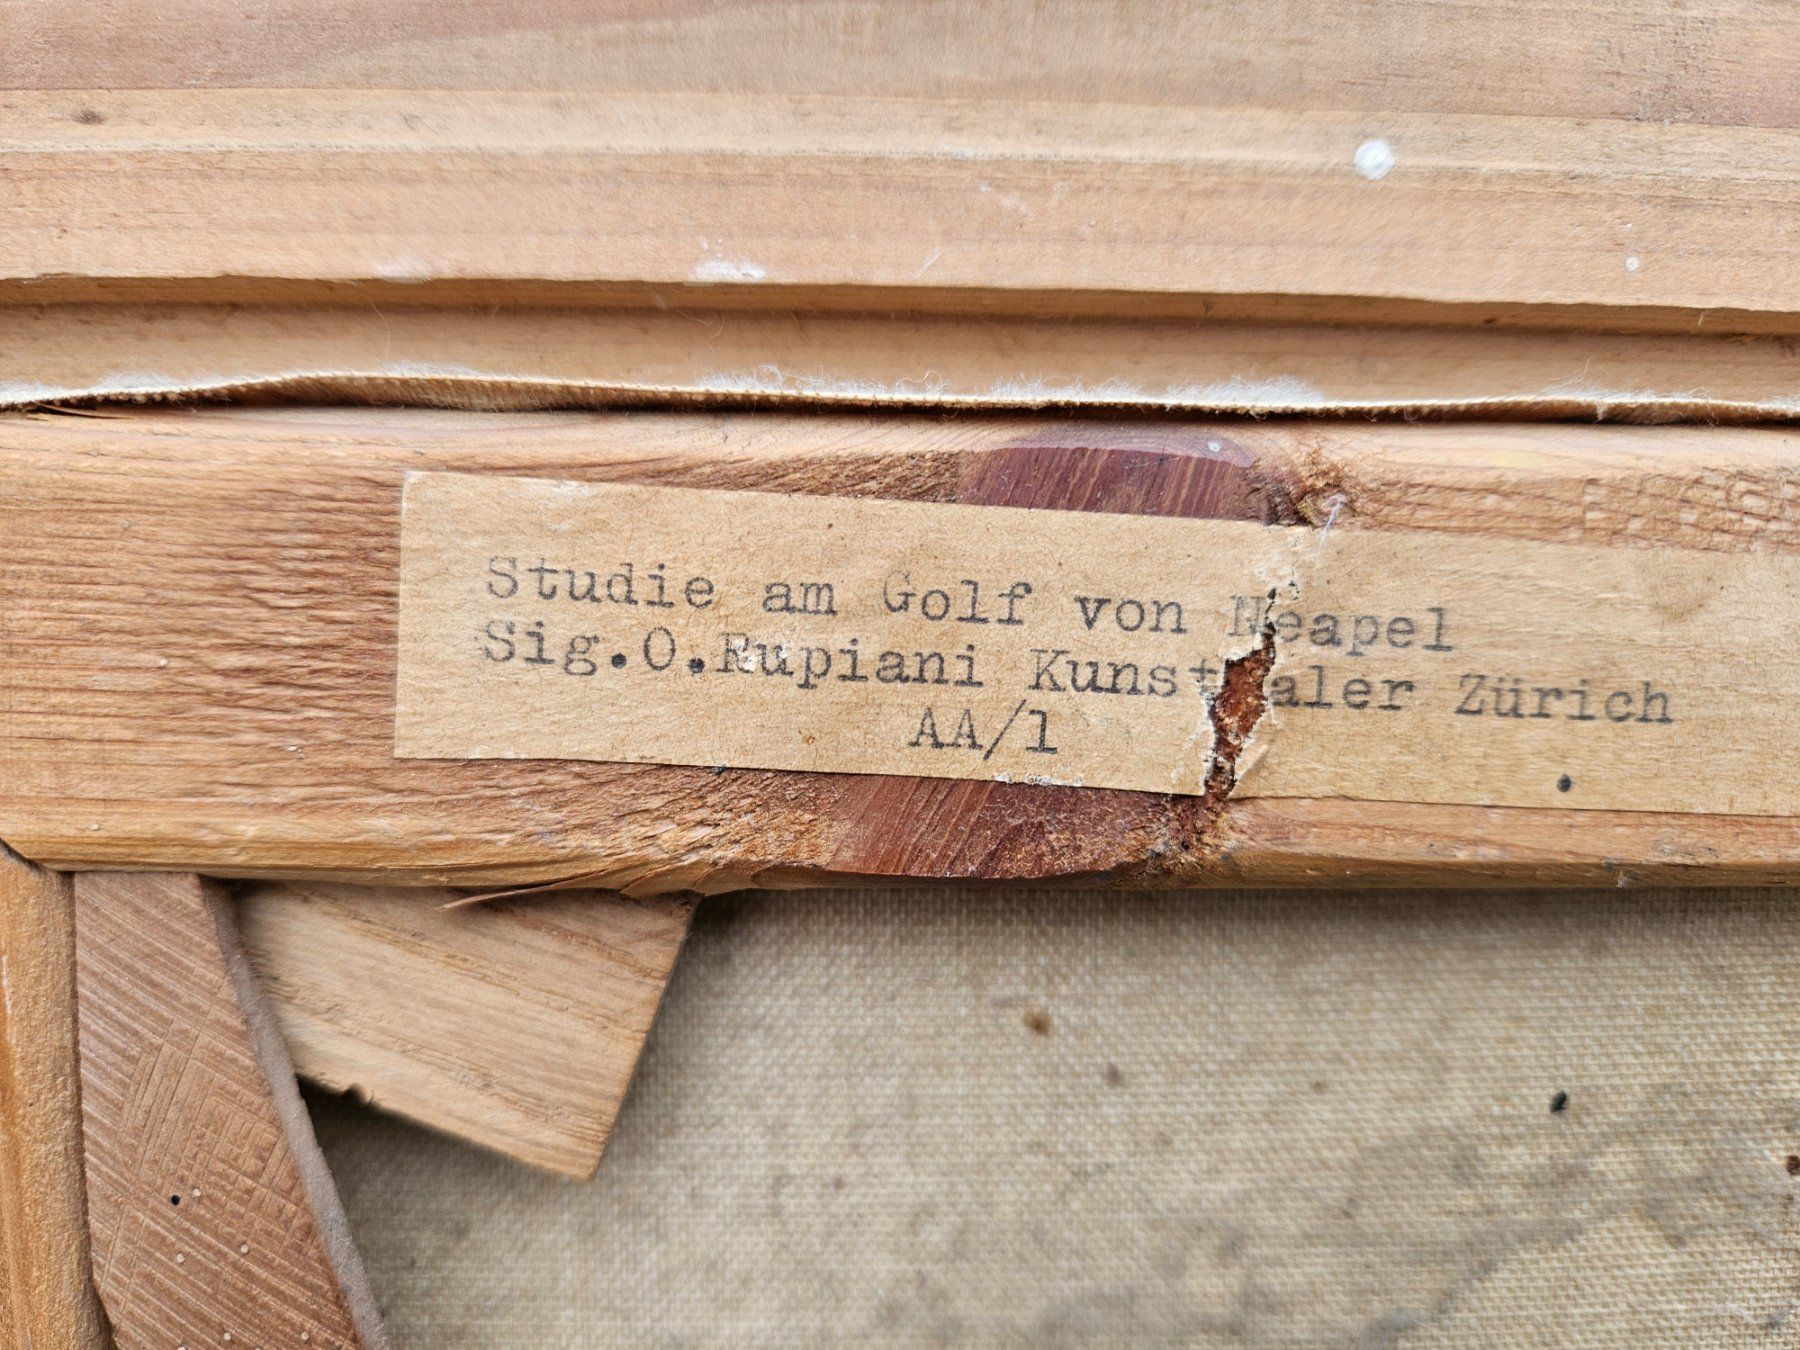 Studie am Golf von Neapel
Sig.O.Rupiani Kunst aler Zürich
AA/1